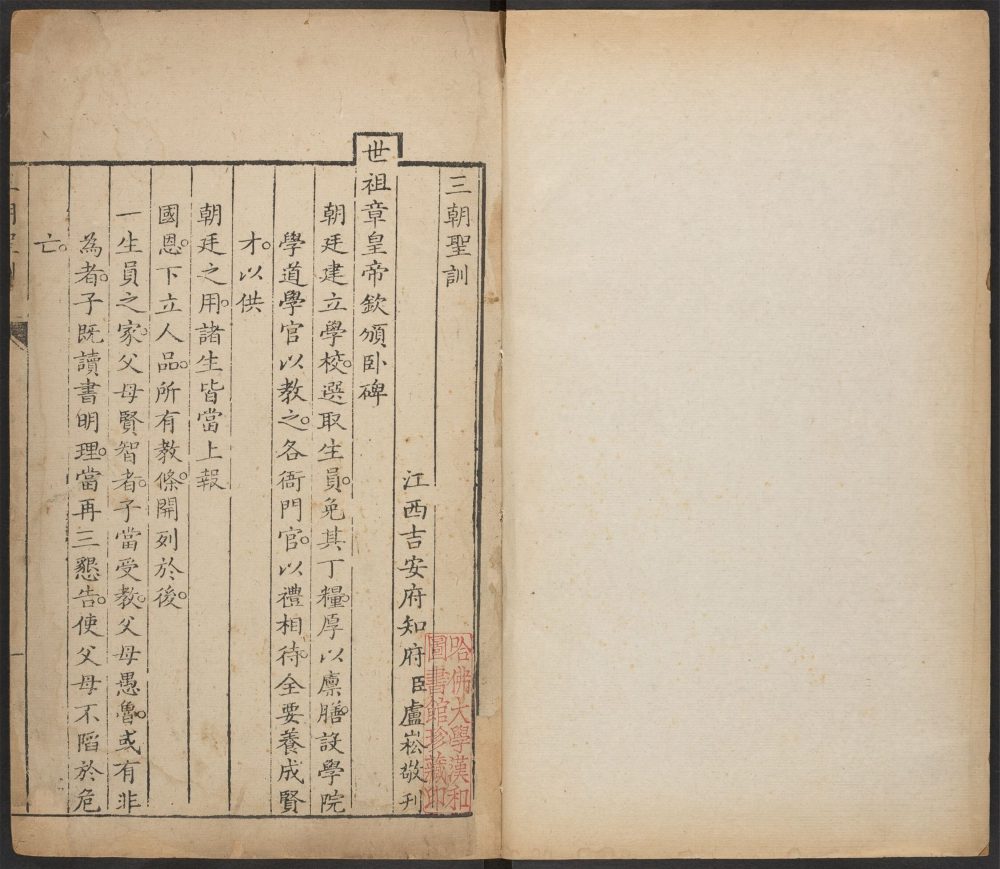 三朝聖訓
江西吉安府知府臣盧崧敬刊
世祖章皇帝欽頒卧碑
朝廷建立學校。選取生員。免其丁糧。厚以廩膳。設學院
學道學官以教之。各衙門官。以禮相待。全要養成賢
才。以供
朝廷之用。諸生皆當上報
國恩。下立人品。所有教條。開列於後。
一生員之家。父母賢智者。子當受教。父母愚魯。或有非
為者。子既讀書明理。當再三懇告。使父母不陷於危
亡。
一
哈佛大學漢和
圖書館珍藏印